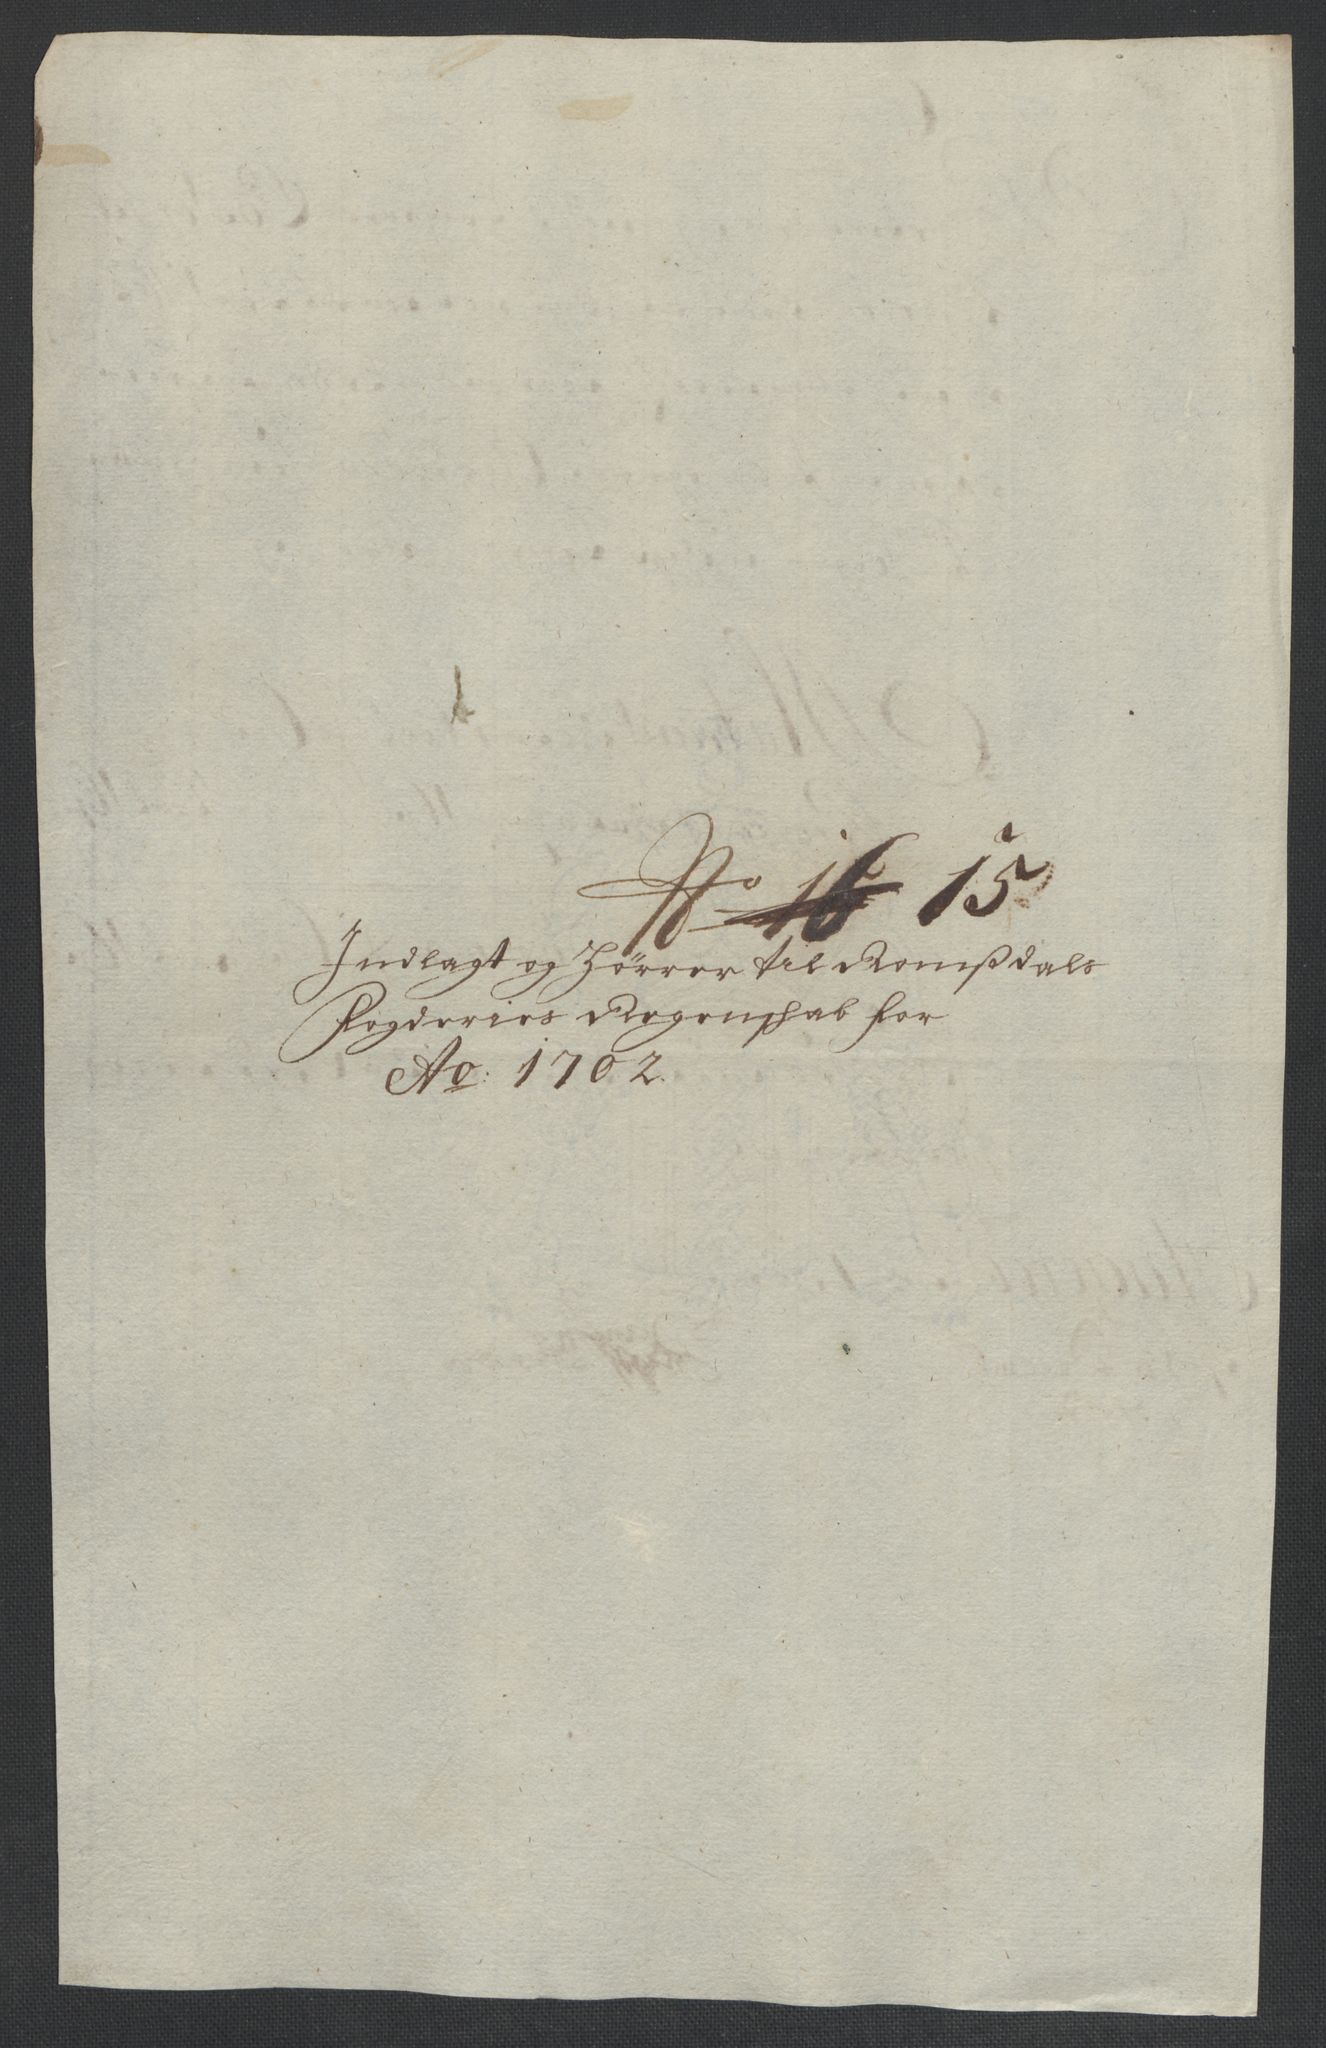 No 16 15
Indlagt og hørrer til Romßdals
Fogderies Regenschab for
Ao: 1702.